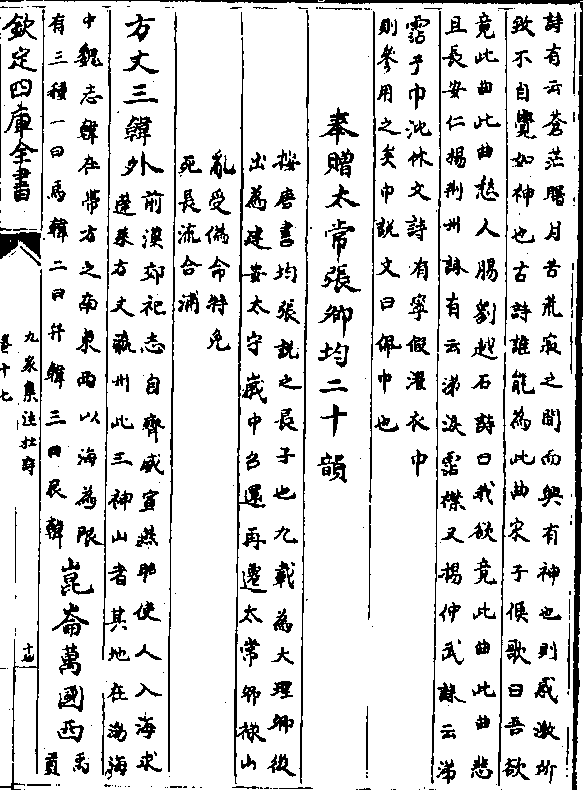 詩有云蒼茫踏月苦荒寂之間而興有神也則感激所
致不自覺如神也古詩誰能為此曲宋子侯歌曰吾欲
竟此曲此曲愁人腸劉越石詩曰我欲竟此曲此曲悲
且長安仁楊荆州誄有云涕淚霑襟又楊仲武誄云涕
霑于巾沈休文詩有寧假濯衣巾
則參用之矣巾説文曰佩巾也
奉贈太常張卿均二十韻
按唐書均張説之長子也九載為大理卿後
出為建安太守歲中召還再遷太常卿祿山
亂受偽命特免
死長流合浦
方丈三韓外
前漢郊祀志自齊威宣燕昭使人入海求
蓬萊方丈瀛州此三神山者其地在渤海
中魏志韓在帶方之南東西以海為限
有三種一曰馬韓二曰弁韓三曰辰韓
崑崙萬國西
禹
貢
欽定四庫全書
九家集注杜詩
卷十七